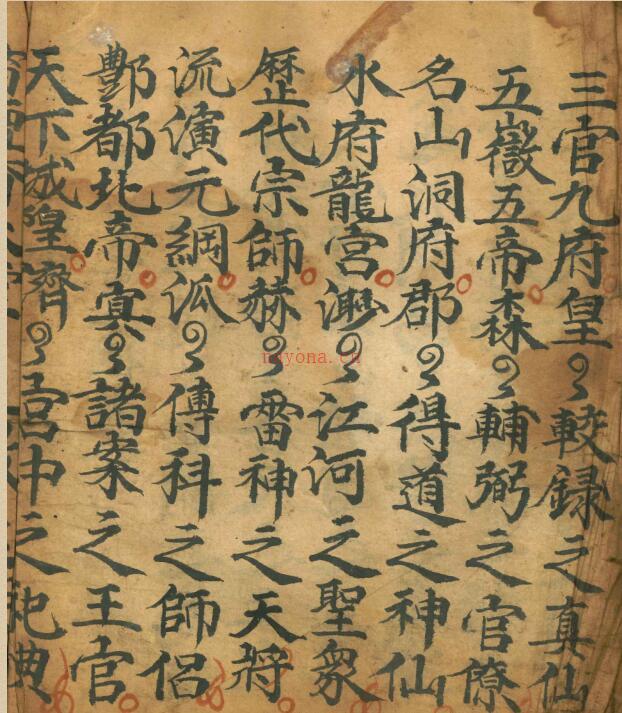 三官九府皇〻較録之真仙
五嶽五帝森〻輔弼之官僚
名山洞府郡〻得道之神仙
水府龍宮渺〻江河之聖衆
歴代宗師赫〻雷神之天将
流演元綱派〻傳科之師侶
酆都北帝寘〻諸案之王官
天下城皇齊〻宫中之祀典
nayona.cn